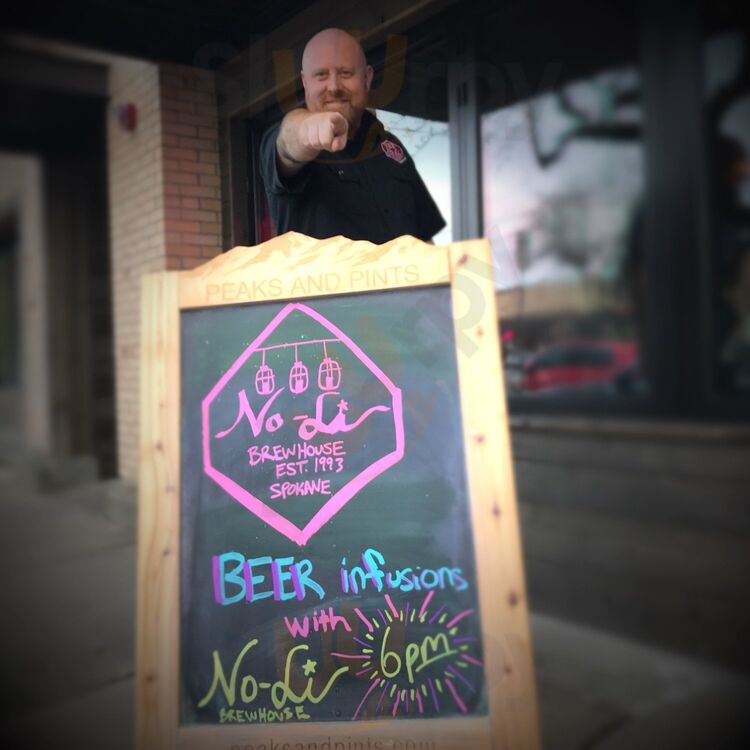 PEAKS AND PINTS
No-Li
BREWHOUSE
EST. 1993
SPOKANE
BEER infusions
with
6pm
No-Li
BREWHOUSE
peaksandpints.com